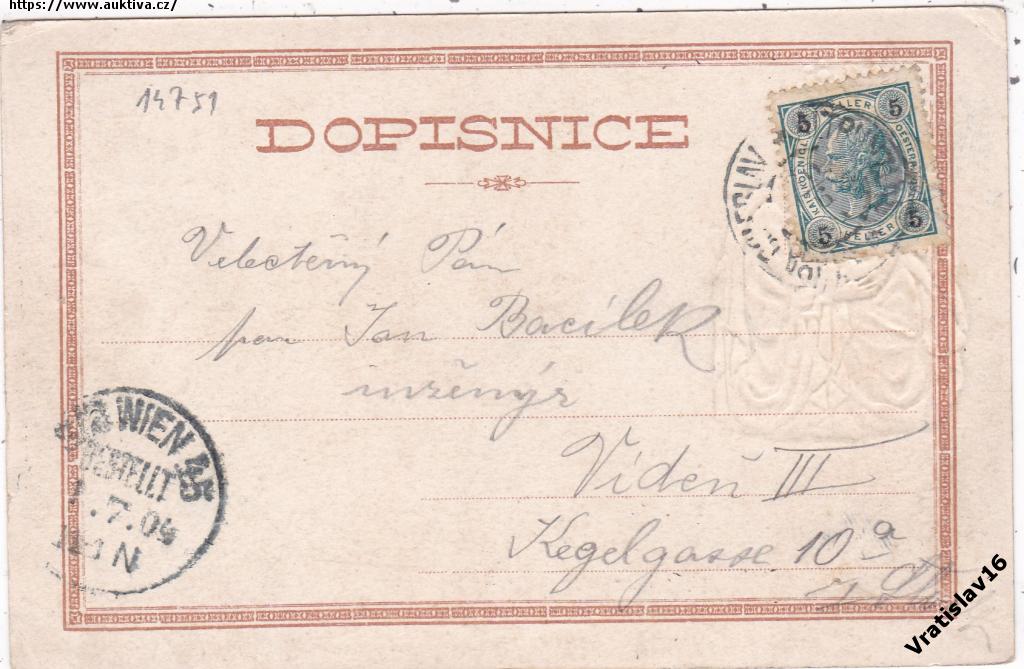 https://www.auktiva.cz/
14751
DOPISNICE
5 HELLER 5
KAIS. KOENIGL. OESTERR.
5 HELLER 5
BOLESLAV
Velectěný Pán
pan Jan Bacílek
inženýr
Vídeň III
Kegelgasse 10a
WIEN 45
BESTELLT
.7.04
N
Vratislav16